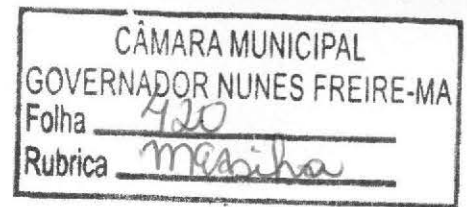 CÂMARA MUNICIPAL
GOVERNADOR NUNES FREIRE-MA
Folha 420
Rubrica